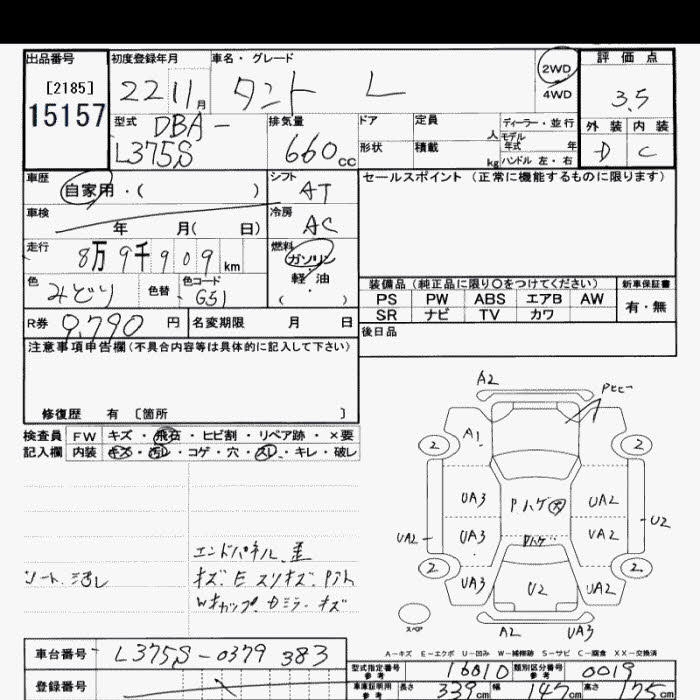 出品番号 初度登録年月 車名・グレード 2WD 評価点
[2185] 22 11月 タント L 4WD 3.5
15157
型式 DBA- 排気量 ドア 定員 人 ディーラー・並行 外装 内装
L375S 660cc 形状 積載 kg モデル年式 年 D C
ハンドル 左・右
車歴 自家用・( ) シフト AT セールスポイント(正常に機能するものに限ります)
車検 年 月( 日) 冷房 AC
走行 8万9千909km 燃料 ガソリン
軽・油
( )
色 みどり 色替 色コード G51
装備品(純正品に限り〇をつけてください) 新車保証書
PS PW ABS エアB AW 有・無
SR ナビ TV カワ
R券 9,790円 名変期限 月 日 後日品
注意事項申告欄(不具合内容等は具体的に記入して下さい)
修復歴 有 〔箇所 〕
検査員 FW キズ・飛石・ヒビ割・リペア跡・×要
記入欄 内装 キズ・汚レ・コゲ・穴・スレ・キレ・破レ
A2
A1
2 2
UA3 Pハゲ 大 UA2
UA2 UA3 Pハゲ UA2 U2
2 2
UA3 U2 UA2
スペア A2 UA3
エンドパネル 歪
シート汚レ キズ.E スリキズ.
キズ
A-キズ E-エクボ U-凹み W-補修跡 S-サビ C-腐食 XX-交換済
車台番号 L375S-0379383
型式指定番号 参考 16010 類別区分番号 参考 0019
登録番号 車庫証明用 参考 長さ 339cm 幅 147cm 高さ 175cm